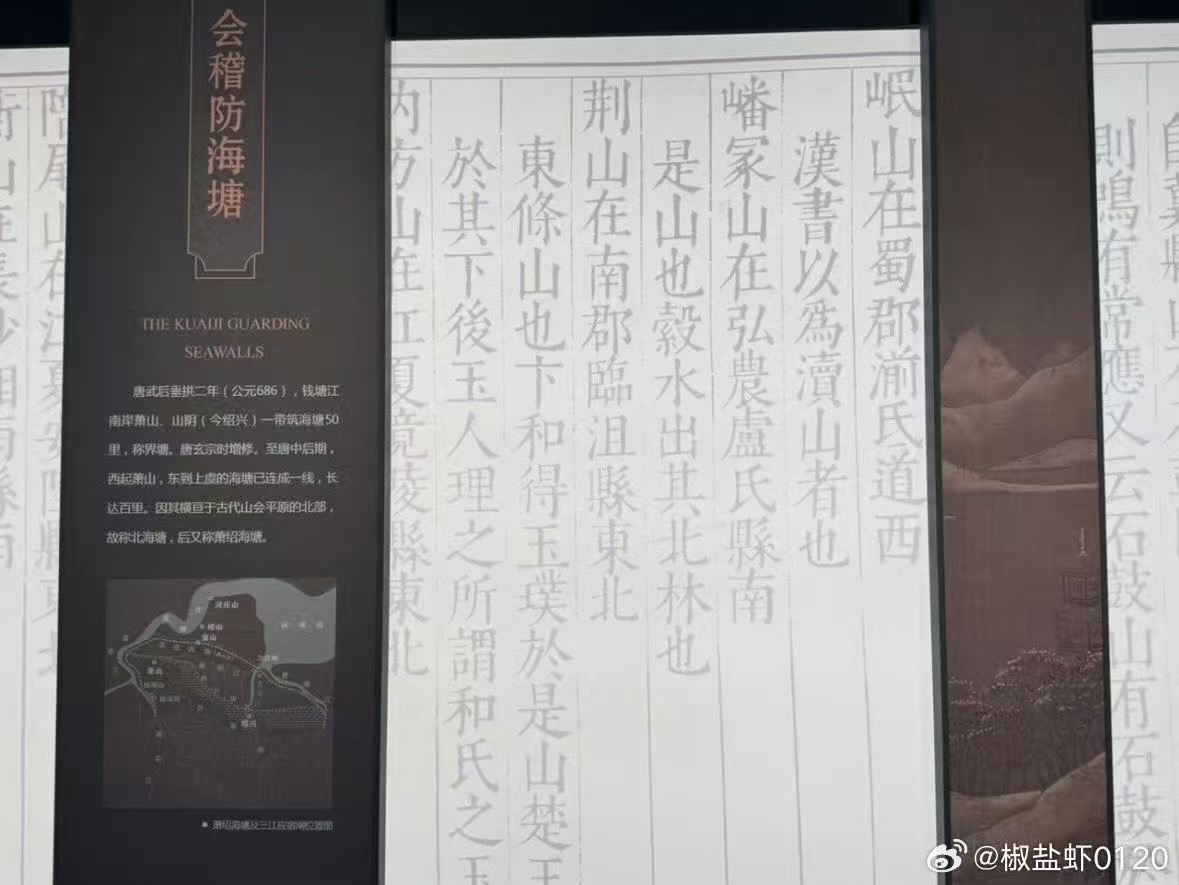 会稽防海塘
THE KUAIJI GUARDING
SEAWALLS
唐武后垂拱二年（公元686），钱塘江
南岸萧山、山阴（今绍兴）一带筑海塘50
里，称界塘。唐玄宗时增修。至唐中后期，
西起萧山，东到上虞的海塘已连成一线，长
达百里。因其横亘于古代山会平原的北部，
故称北海塘，后又称萧绍海塘。
河庄山
萧山
绍兴
■ 萧绍海塘及三江应宿闸位置图
則鳴有常應又云石鼓山有石鼓於
岷山在蜀郡湔氐道西
漢書以爲瀆山者也
嶓冢山在弘農盧氏縣南
是山也穀水出其北林也
荆山在南郡臨沮縣東北
東條山也卞和得玉璞於是山楚王
於其下後玉人理之所謂和氏之玉
内方山在江夏竟陵縣東北
@椒盐虾0120